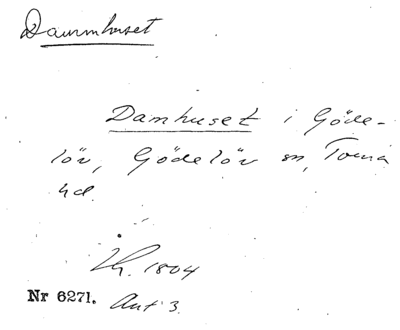 Daumhuset
Damhuset i Göde-
löv, Gödelöv sn, Torna
hd.
Lr. 1804
Nr 6271. Ant 3.